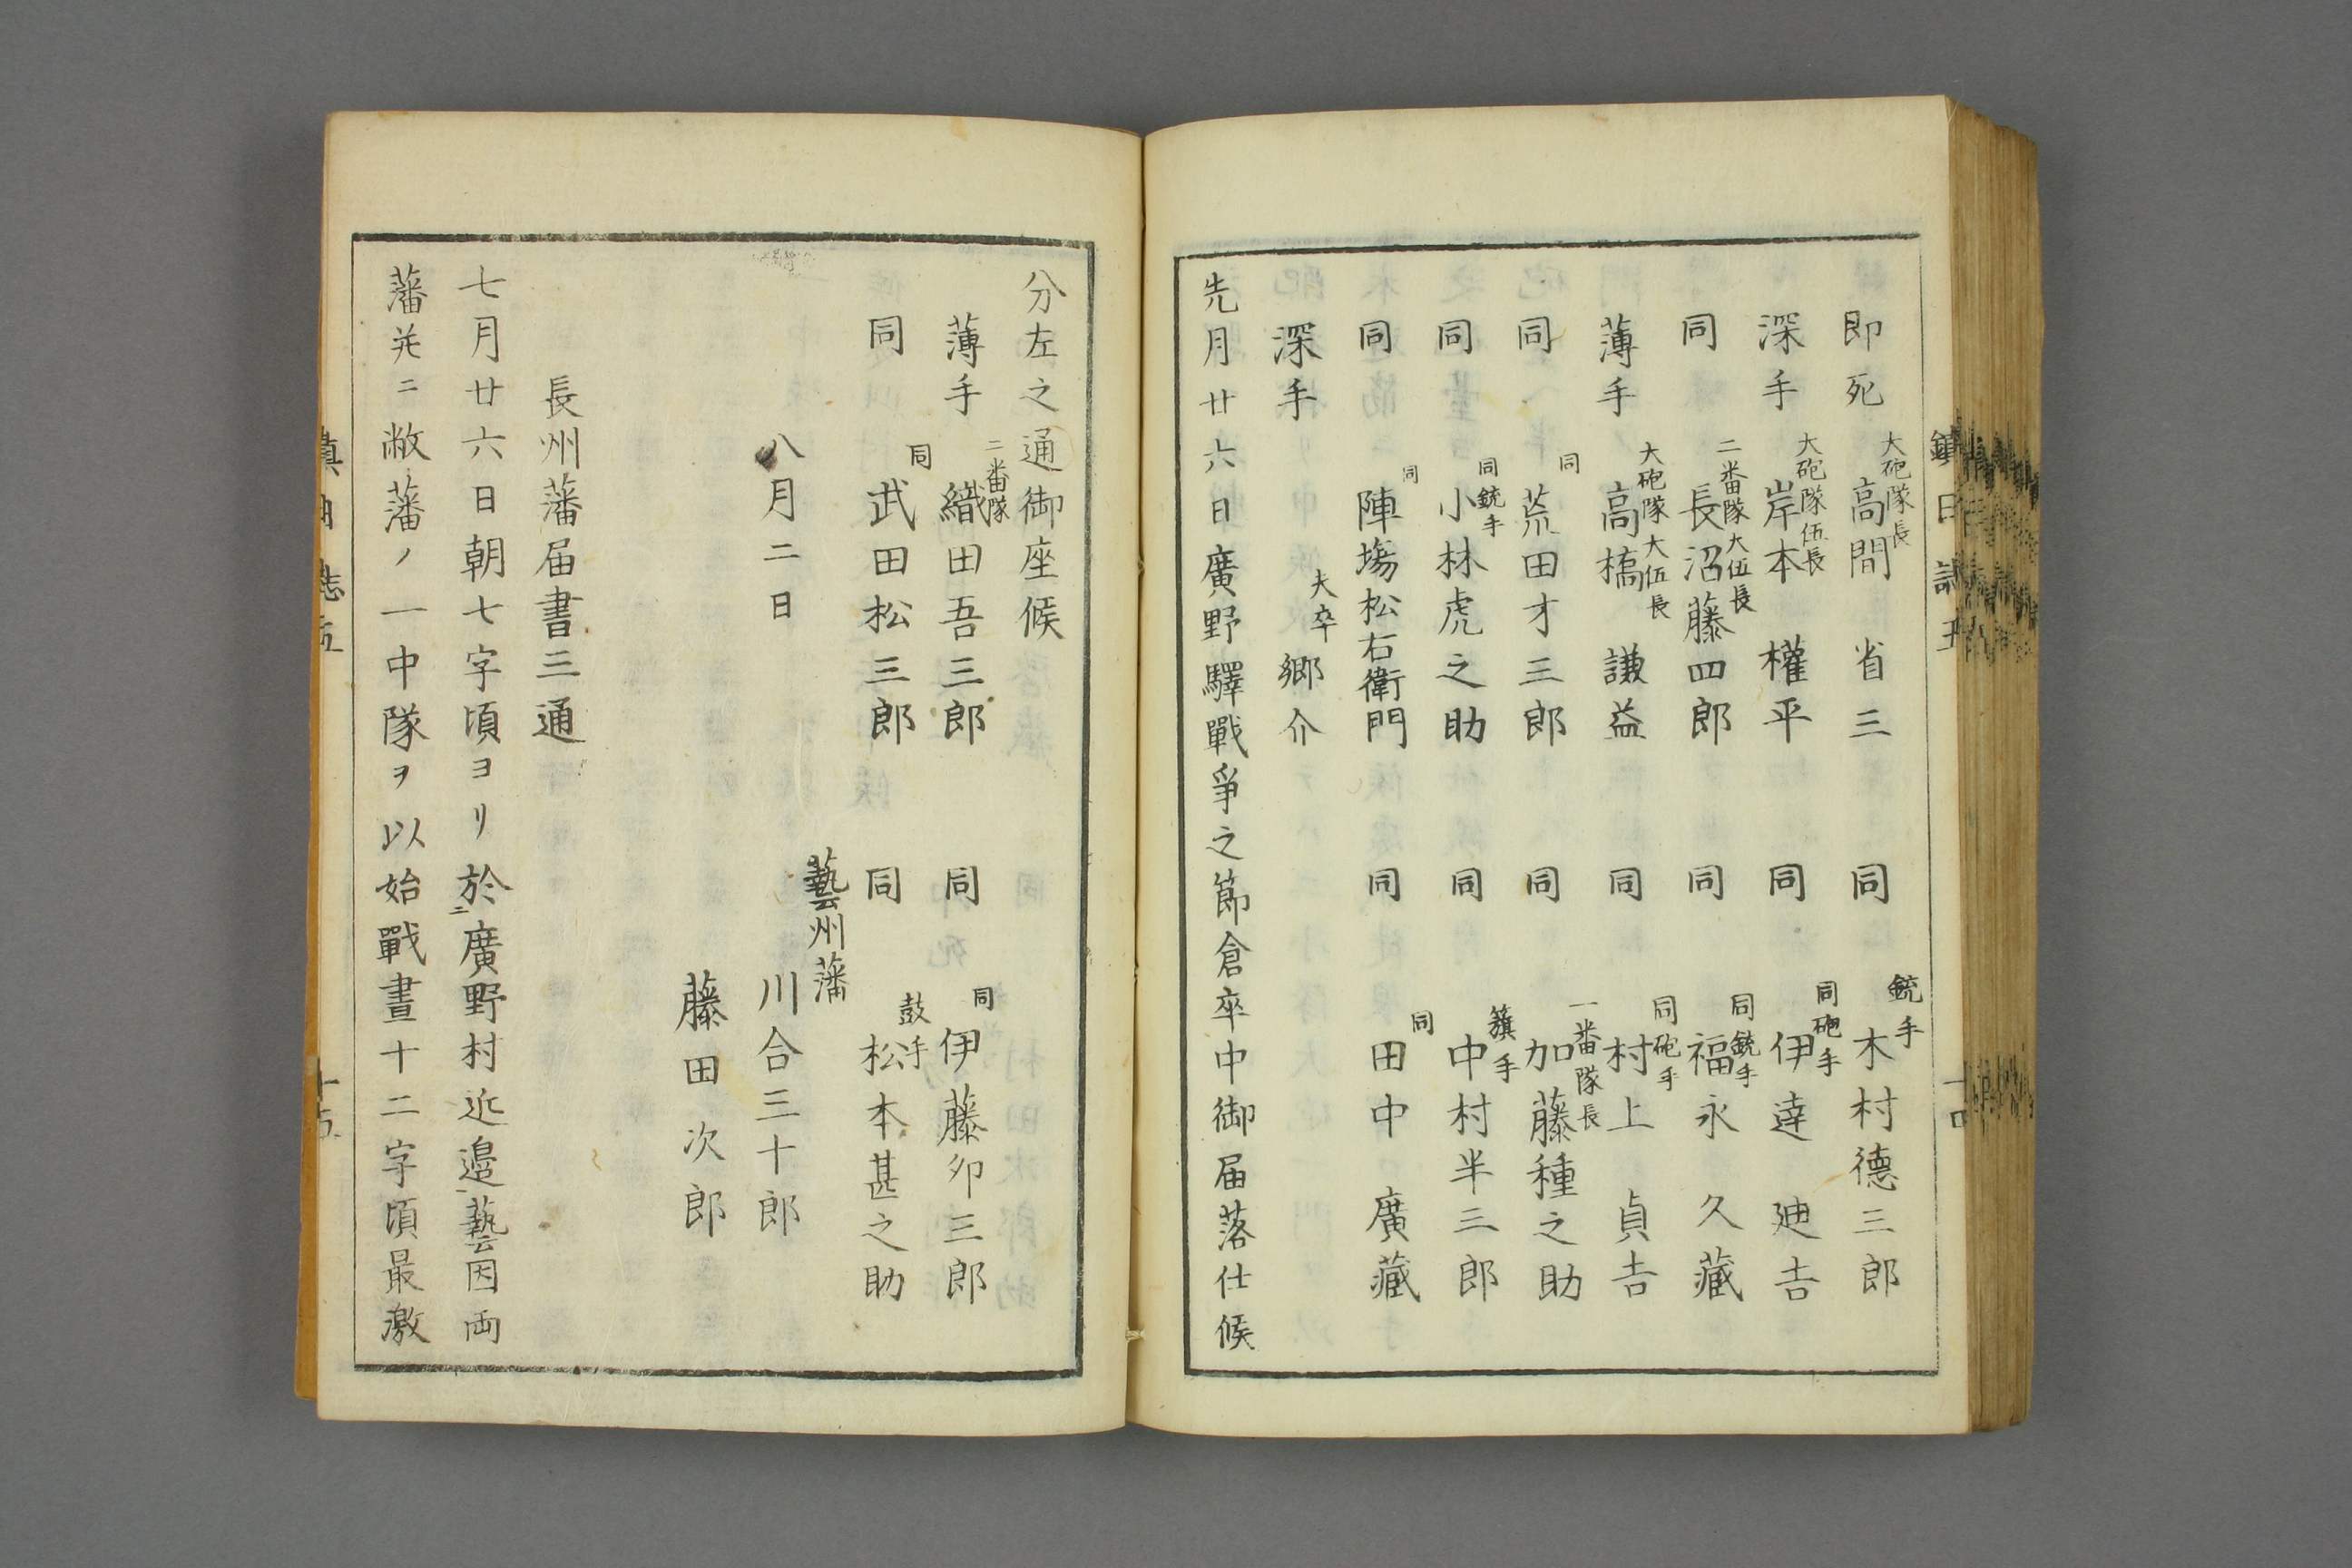 即死 大砲隊長 高間省三 同 銃手 木村德三郎
深手 大砲隊伍長 岸本權平 同 同砲手 伊達廸吉
同 二番隊大伍長 長沼藤四郎 同 同銃手 福永久藏
薄手 大砲隊大伍長 高橋謙益 同 同砲手 村上貞吉
同 同 荒田才三郎 同 一番隊長 加藤種之助
同 同銃手 小林虎之助 同 籏手 中村半三郎
同 同 陣塲松右衛門 同 同 田中廣藏
深手 夫卒 郷介
先月廿六日廣野驛戰爭之節倉卒中御届落仕候
鎮日誌五
十四
分左之通御座候
薄手 二番隊 織田吾三郎 同 同 伊藤夘三郎
同 同 武田松三郎 同 鼓手 松本甚之助
藝州藩
八月二日 川合三十郎
藤田次郎
長州藩届書三通
七月廿六日朝七字頃ヨリ於ニ廣野村近邉藝因両
藩并ニ敝藩ノ一中隊ヲ以始戰晝十二字頃最激
鎮日誌五
十五